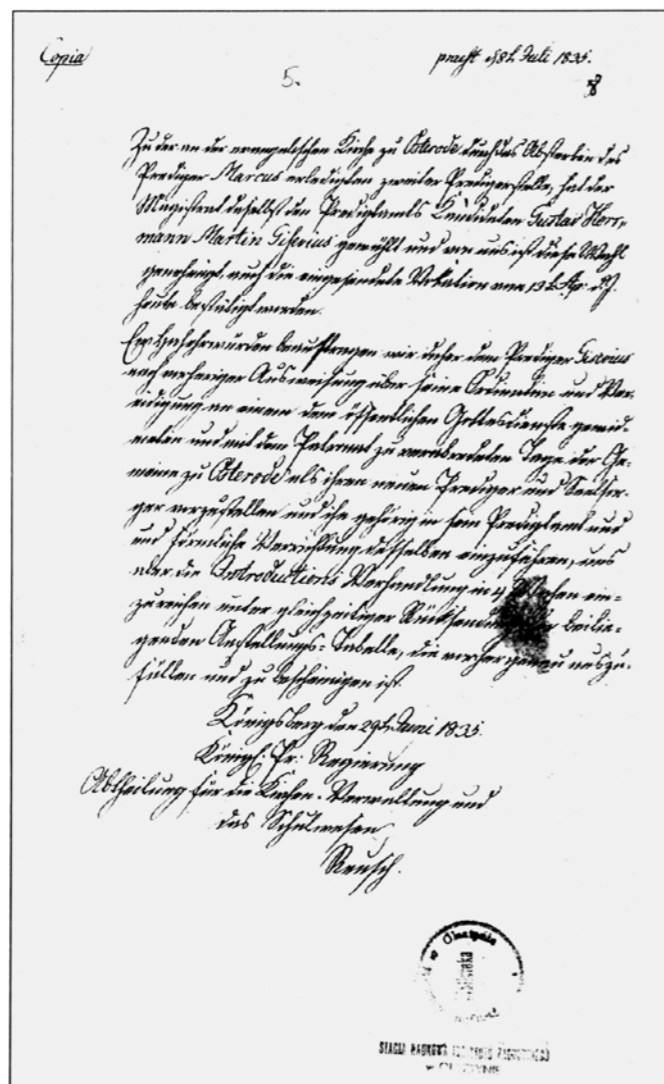 Copia
praes. d 8t. Juli 1835.
5.
Zu der an der evangelischen Kirche zu Osterode durch das Absterben des
Prediger Marcus erledigten zweiter Predigerstelle, hat der
Magistrat daselbst den Predigtamts Candidaten Gustav Herr-
mann Martin Giserius gewählt und von uns ist diese Wahl
genehmigt auch die eingesendete Vokation vom 13t. Ap. d. J.
heute bestätigt worden.
Ew. Hochehrwürden beauftragen wir daher dem Prediger Giserius
nach vorheriger Ausweisung über seine Ordination und Ver-
eidigung an einem dem öffentlichen Gottesdienste gewid-
meten und mit dem Patronat zu verabredeten Tage der Ge-
meine zu Osterode als ihren neuen Prediger und Seelsor-
ger vorzustellen und ihn gehörig in sein Predigtamt und
und förmliche Verrichtung desselben einzuführen, uns
aber die Introductions Verhandlung in 4 Wochen ein-
zureichen unter gleichzeitiger Rücksendung der beilie-
genden Anstellungs-Tabelle, die vorher genau auszu-
füllen und zu bescheinigen ist.
Königsberg den 29t. Juni 1835.
Königl. Pr: Regierung
Abtheilung für die Kirchen-Verwaltung und
das Schulwesen
Reusch.
w Olsztynie
STACJI NAUKOWEJ
w OLSZTYNIE